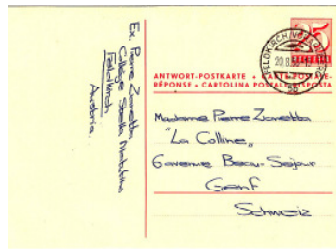 Ex. Pierre Zanetta
Collège Stella Matutina
Feldkirch
Austria
25
ANTWORT-POSTKARTE • CARTE POSTALE-
RÉPONSE • CARTOLINA POSTALE RISPOSTA
Madame Pierre Zanetta
"La Colline"
6 avenue Beau-Sejour
Genf
Schweiz